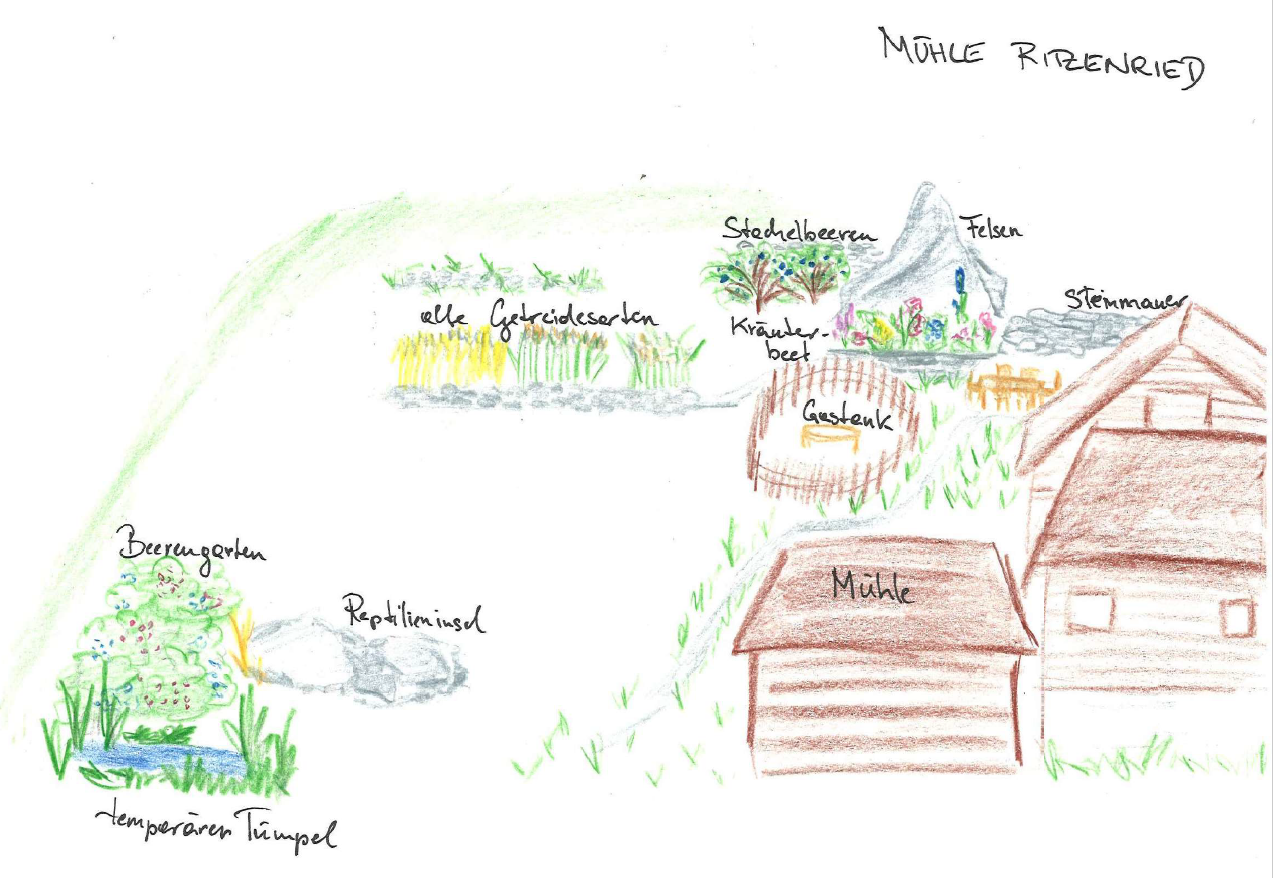 MÜHLE RITZENRIED
Stachelbeeren
Felsen
Steinmauer
alle Getreidesorten
Kräuter-
beet
Gastank
Beerengarten
Mühle
Reptilieninsel
temporärer Tümpel